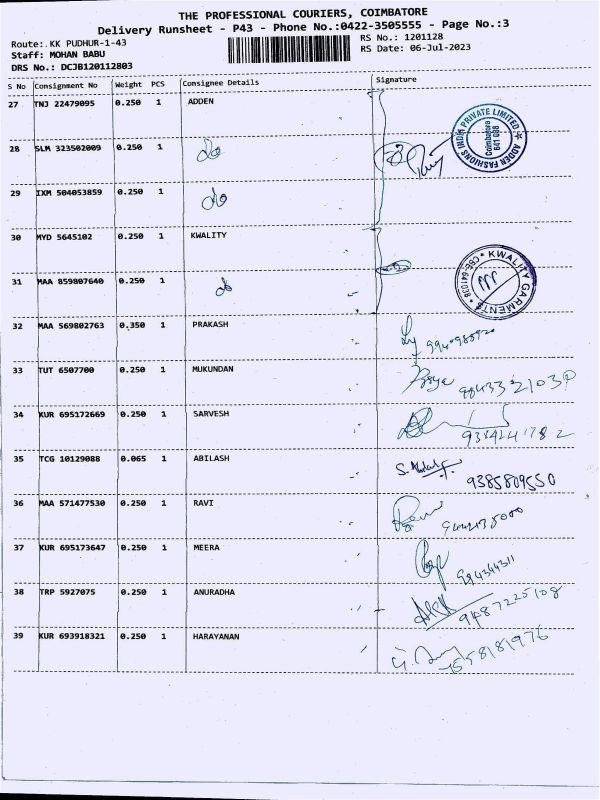 THE PROFESSIONAL COURIERS, COIMBATORE
Delivery Runsheet - P43 - Phone No.:0422-3505555 - Page No.:3
Route:.KK PUDHUR-1-43
RS No.: 1201128
Staff: MOHAN BABU
RS Date: 06-Jul-2023
DRS No.: DCJB120112803
S No Consignment No Weight PCS Consignee Details Signature
27 TNJ 22479095 0.250 1 ADDEN
ADDEN FASHIONS INDIA PRIVATE LIMITED
Coimbatore
641 038
28 SLM 323502009 0.250 1 do
29 IXM 504053859 0.250 1 do
30 MYD 5645102 0.250 1 KWALITY
KWALITY GARMENTS
CBE-641038
31 MAA 859807640 0.250 1 do
32 MAA 569802763 0.350 1 PRAKASH
33 TUT 6507700 0.250 1 MUKUNDAN
34 KUR 695172669 0.250 1 SARVESH
35 TCG 10129088 0.065 1 ABILASH 9385809550
36 MAA 571477530 0.250 1 RAVI
37 KUR 695173647 0.250 1 MEERA
38 TRP 5927075 0.250 1 ANURADHA 9487225108
39 KUR 693918321 0.250 1 HARAYANAN